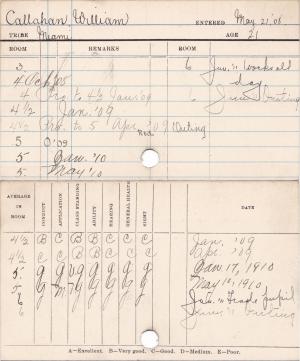 Callahan William ENTERED May 21, '08
TRIBE Miami AGE 21
ROOM REMARKS ROOM
3 6 Jun. 'n work all
4 Oct '08 day
4 Pro to 4½ Jan '09 6 Outing
4½ Jan. '09
4½ Pro. to 5 Apr. '09 Outing
5 O'09
5 Jan. '10
5 May '10
AVERAGE IN ROOM CONDUCT APPLICATION CLASS STANDING ABILITY HEARING GENERAL HEALTH SIGHT DATE
4½ B C B B C C C Jan. '09
4½ B C C C C C C Apr. '09
5 g g g g g g g Jan 17, 1910
5 g g g g g g May 1910
6 pupil
6 Outing
A—Excellent. B—Very good. C—Good. D—Medium. E—Poor.